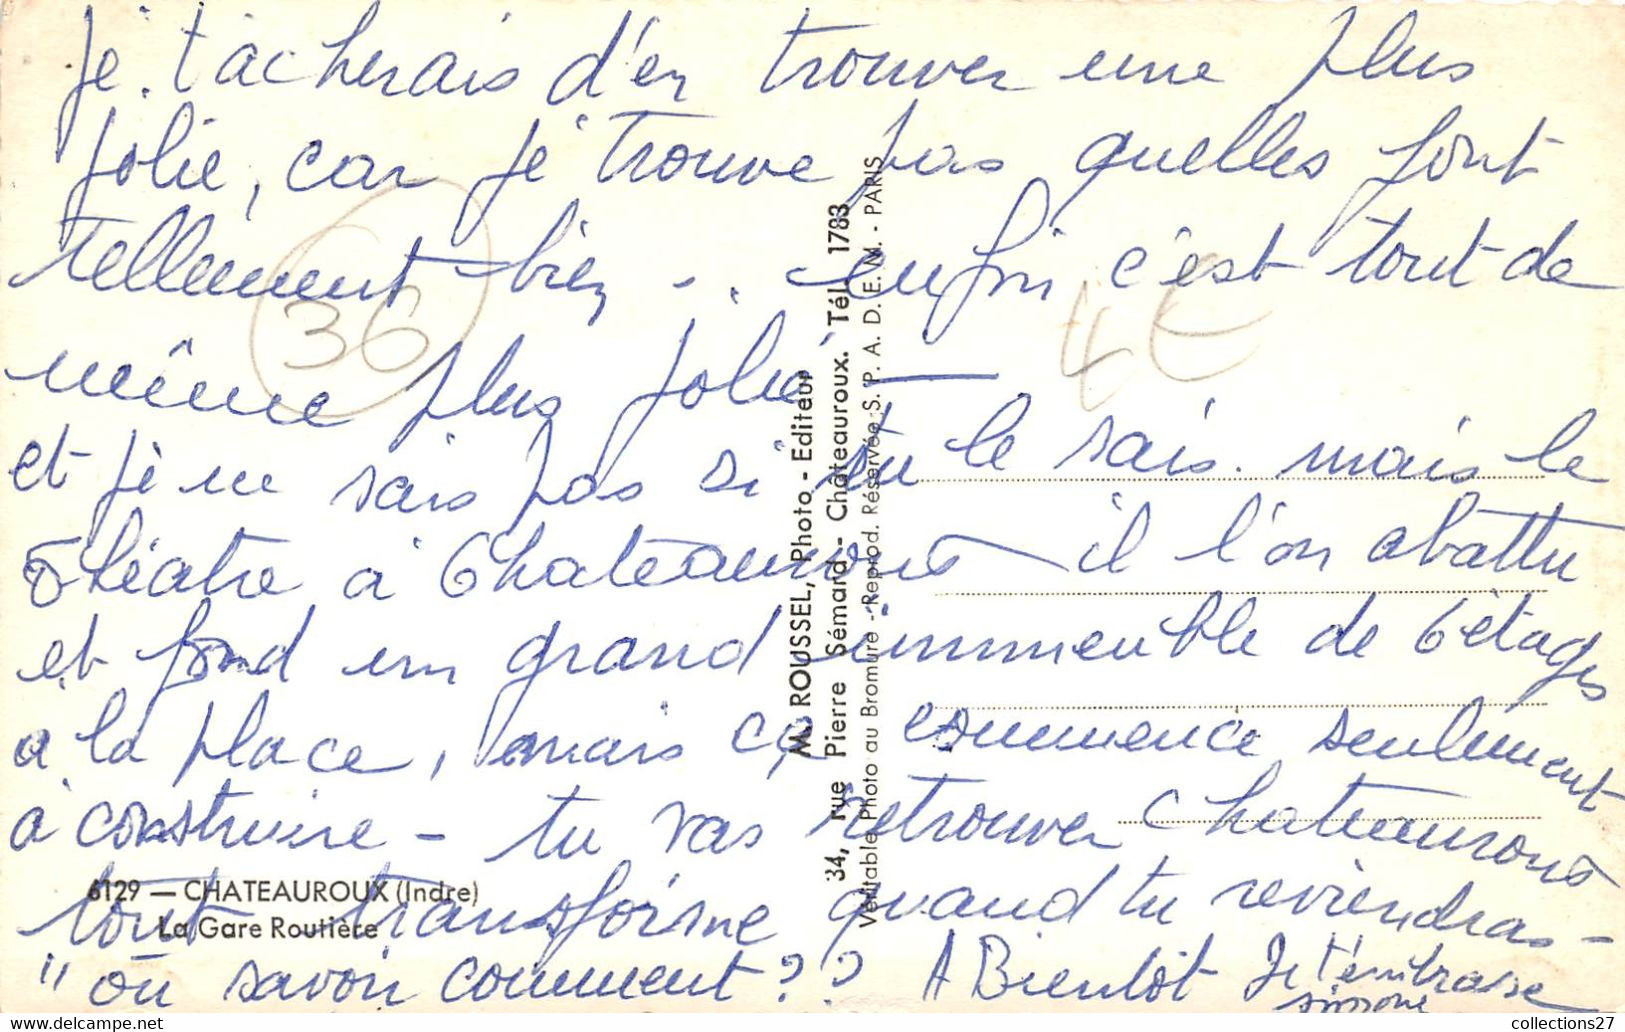 Je tacherais d'en trouver une plus
jolie, car je trouve pas quelles font
tellement bien - . enfin c'est tout de
même plus jolie —
et je ne sais pas si tu le sais. mais le
théatre à Chateauroux il l'on abattu
et fond un grand immeuble de 6 étages
a la place, mais ça commence seulement
à construire - tu vas retrouver Chateauroux
tout transforme quand tu reviendras -
" ou savoir comment ?? A Bientôt Je t'embrasse
simone
36
6129 — CHATEAUROUX (Indre)
La Gare Routière
M. ROUSSEL, Photo - Editeur
34, rue Pierre Sémard - Châteauroux. Tél. 1783
Véritable Photo au Bromure - Reprod. Réservée S. P. A. D. E. M. - PARIS
collections27